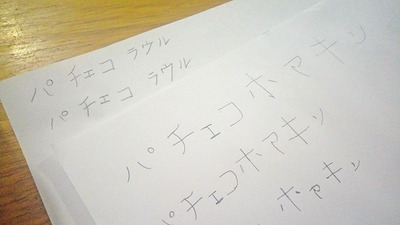 パチェコ ラウル
パチェコ ラウル
パチェコホアキン
パチェコホアキン
ホアキン